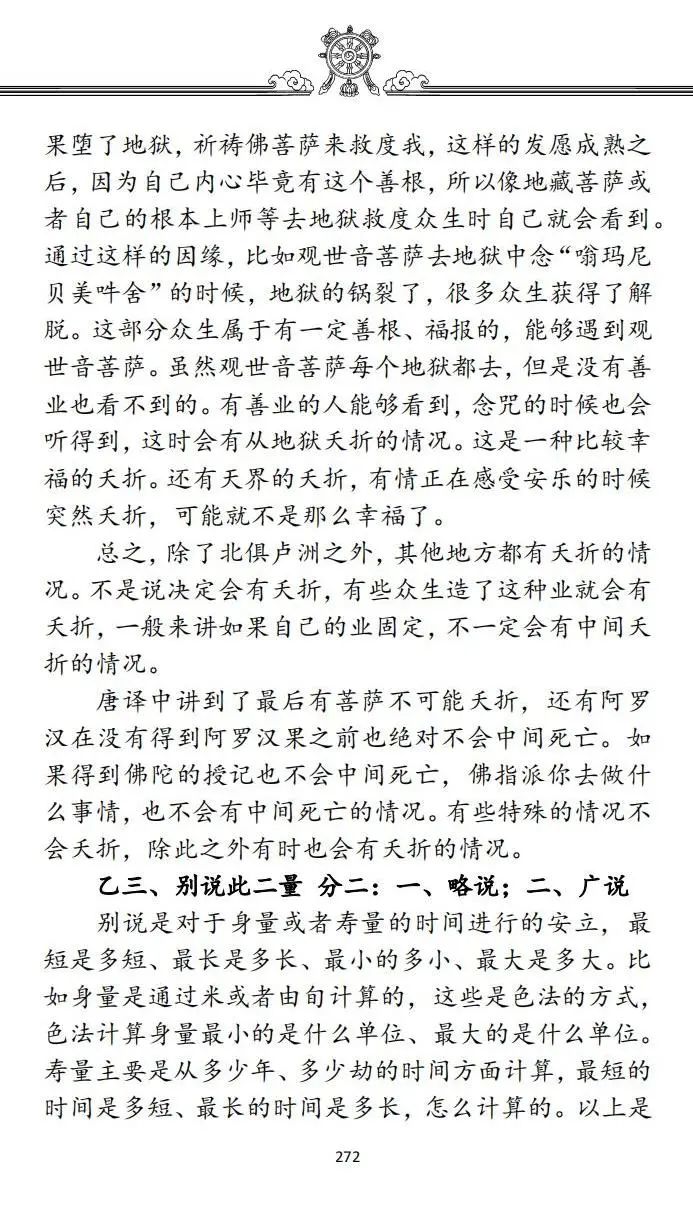 果堕了地狱，祈祷佛菩萨来救度我，这样的发愿成熟之
后，因为自己内心毕竟有这个善根，所以像地藏菩萨或
者自己的根本上师等去地狱救度众生时自己就会看到。
通过这样的因缘，比如观世音菩萨去地狱中念“嗡玛尼
贝美吽舍”的时候，地狱的锅裂了，很多众生获得了解
脱。这部分众生属于有一定善根、福报的，能够遇到观
世音菩萨。虽然观世音菩萨每个地狱都去，但是没有善
业也看不到的。有善业的人能够看到，念咒的时候也会
听得到，这时会有从地狱夭折的情况。这是一种比较幸
福的夭折。还有天界的夭折，有情正在感受安乐的时候
突然夭折，可能就不是那么幸福了。
总之，除了北俱卢洲之外，其他地方都有夭折的情
况。不是说决定会有夭折，有些众生造了这种业就会有
夭折，一般来讲如果自己的业固定，不一定会有中间夭
折的情况。
唐译中讲到了最后有菩萨不可能夭折，还有阿罗
汉在没有得到阿罗汉果之前也绝对不会中间死亡。如
果得到佛陀的授记也不会中间死亡，佛指派你去做什
么事情，也不会有中间死亡的情况。有些特殊的情况不
会夭折，除此之外有时也会有夭折的情况。
乙三、别说此二量 分二：一、略说；二、广说
别说是对于身量或者寿量的时间进行的安立，最
短是多短、最长是多长、最小的多小、最大是多大。比
如身量是通过米或者由旬计算的，这些是色法的方式，
色法计算身量最小的是什么单位、最大的是什么单位。
寿量主要是从多少年、多少劫的时间方面计算，最短的
时间是多短、最长的时间是多长，怎么计算的。以上是
272